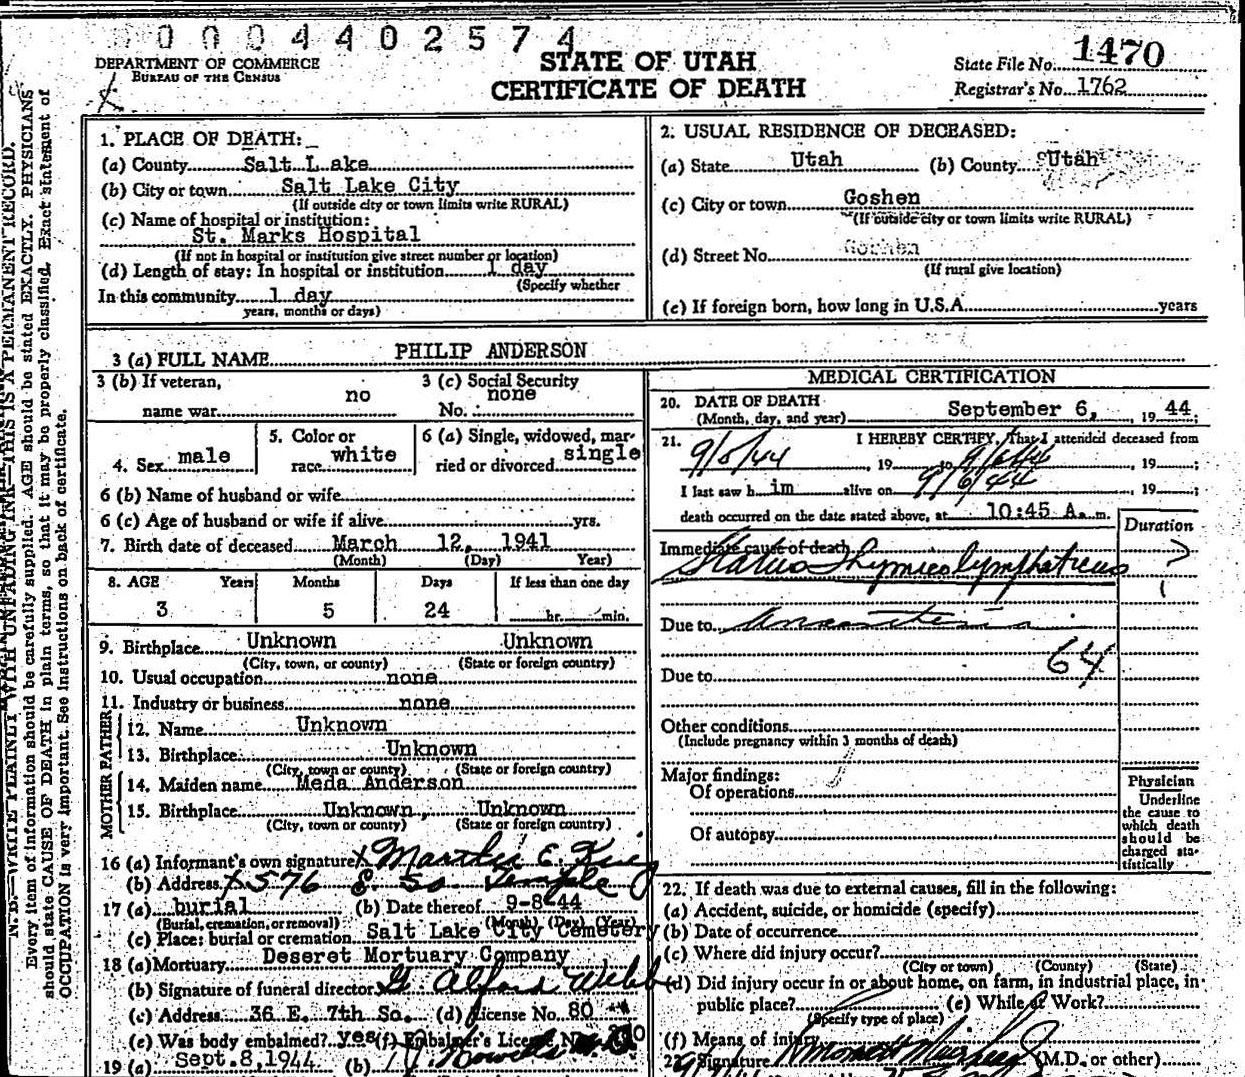 0004402574
DEPARTMENT OF COMMERCE
BUREAU OF THE CENSUS
STATE OF UTAH
CERTIFICATE OF DEATH
State File No. 1470
Registrar's No. 1762
N. B.—WRITE PLAINLY WITH UNFADING INK—THIS IS A PERMANENT RECORD.
Every item of information should be carefully supplied. AGE should be stated EXACTLY. PHYSICIANS
should state CAUSE OF DEATH in plain terms, so that it may be properly classified. Exact statement of
OCCUPATION is very important. See instructions on back of certificate.
1. PLACE OF DEATH:
(a) County Salt Lake
(b) City or town Salt Lake City
(If outside city or town limits write RURAL)
(c) Name of hospital or institution:
St. Marks Hospital
(If not in hospital or institution give street number or location)
(d) Length of stay: In hospital or institution 1 day
(Specify whether
In this community 1 day
years, months or days)
2. USUAL RESIDENCE OF DECEASED:
(a) State Utah (b) County Utah
(c) City or town Goshen
(If outside city or town limits write RURAL)
(d) Street No. Goshen
(If rural give location)
(e) If foreign born, how long in U.S.A. years
3 (a) FULL NAME PHILIP ANDERSON
3 (b) If veteran,
name war no
3 (c) Social Security
No. none
4. Sex male
5. Color or
race white
6 (a) Single, widowed, mar-
ried or divorced single
6 (b) Name of husband or wife
6 (c) Age of husband or wife if alive yrs.
7. Birth date of deceased March 12, 1941
(Month) (Day) Year)
8. AGE Years Months Days If less than one day
3 5 24 hr. min.
9. Birthplace Unknown Unknown
(City, town, or county) (State or foreign country)
10. Usual occupation none
11. Industry or business none
FATHER
12. Name Unknown
13. Birthplace Unknown
(City, town or county) (State or foreign country)
MOTHER
14. Maiden name Meda Anderson
15. Birthplace Unknown, Unknown
(City, town or county) (State or foreign country)
16 (a) Informant's own signature X Martha E. King
(b) Address X 576 E. So. Temple
17 (a) burial (b) Date thereof 9-8-44
(Burial, cremation, or removal) (Month) (Day) (Year)
(c) Place: burial or cremation Salt Lake City Cemetery
18 (a) Mortuary Deseret Mortuary Company
(b) Signature of funeral director G. Alford Webb
(c) Address 36 E. 7th So. (d) License No. 80
(e) Was body embalmed? yes (f) Embalmer's License No.
19 (a) Sept. 8, 1944 (b)
MEDICAL CERTIFICATION
20. DATE OF DEATH
(Month, day, and year) September 6, 19 44;
21. I HEREBY CERTIFY, That I attended deceased from
9/5/44, 19 to 9/6/44, 19 ;
I last saw h im alive on 9/6/44, 19 ;
death occurred on the date stated above, at 10:45 A. m.
Duration
Immediate cause of death
Status Thymico lymphaticus ?
Due to Anaesthesia
64
Due to
Other conditions
(Include pregnancy within 3 months of death)
Major findings:
Of operations
Of autopsy
Physician
Underline
the cause to
which death
should be
charged sta-
tistically
22. If death was due to external causes, fill in the following:
(a) Accident, suicide, or homicide (specify)
(b) Date of occurrence
(c) Where did injury occur?
(City or town) (County) (State)
(d) Did injury occur in or about home, on farm, in industrial place, in
public place? (e) While at Work?
(Specify type of place)
(f) Means of injury
23. Signature (M.D. or other)